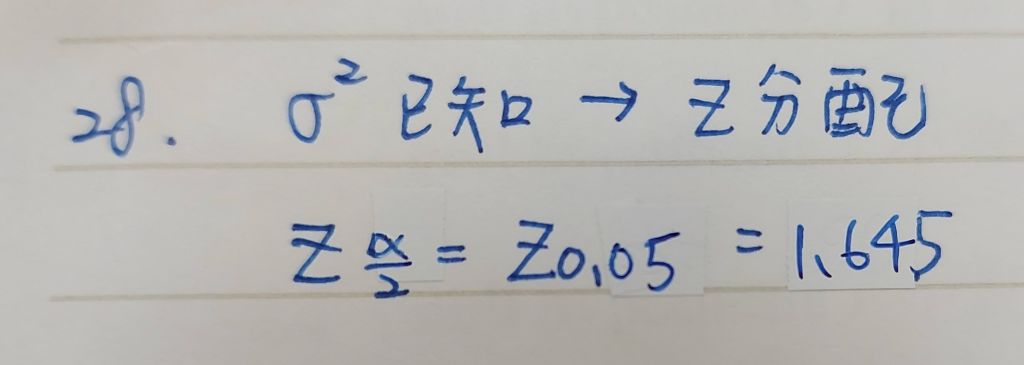 28. σ² 已知 → Z分配
Z α/2 = Z0.05 = 1.645